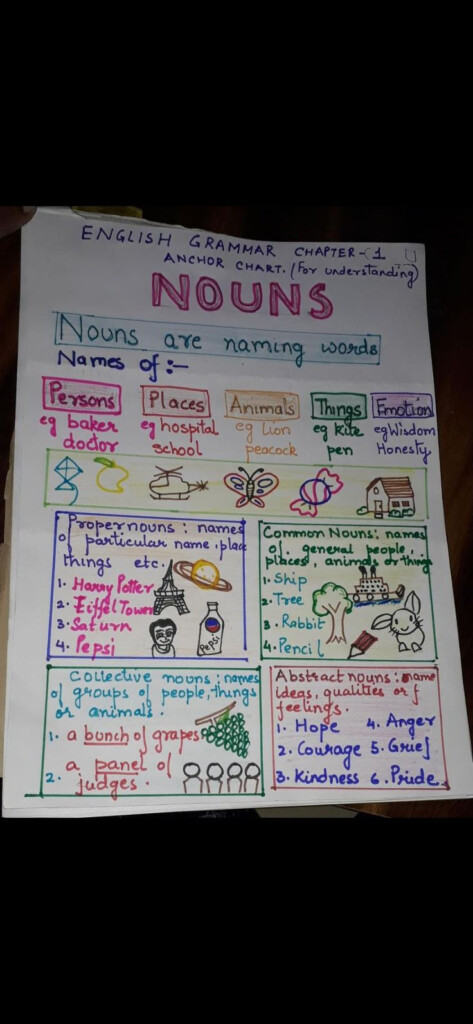 ENGLISH GRAMMAR CHAPTER-1
ANCHOR CHART. (For understanding)
NOUNS
Nouns are naming words
Names of :-
Persons
eg baker
doctor
Places
eg hospital
school
Animals
eg lion
peacock
Things
eg kite
pen
Emotion
eg Wisdom
Honesty
Proper nouns : names
of particular name, place
things etc.
1. Harry Potter
2. Eiffel Tower
3. Saturn
4. Pepsi
Pepsi
Common Nouns: names
of general people,
places, animals or things
1. Ship
2. Tree
3. Rabbit
4. Pencil
Collective nouns : names
of groups of people, things
or animals.
1. a bunch of grapes
2. a panel of
judges.
Abstract nouns : name
ideas, qualities or f
feelings.
1. Hope
2. Courage
3. Kindness
4. Anger
5. Grief
6. Pride